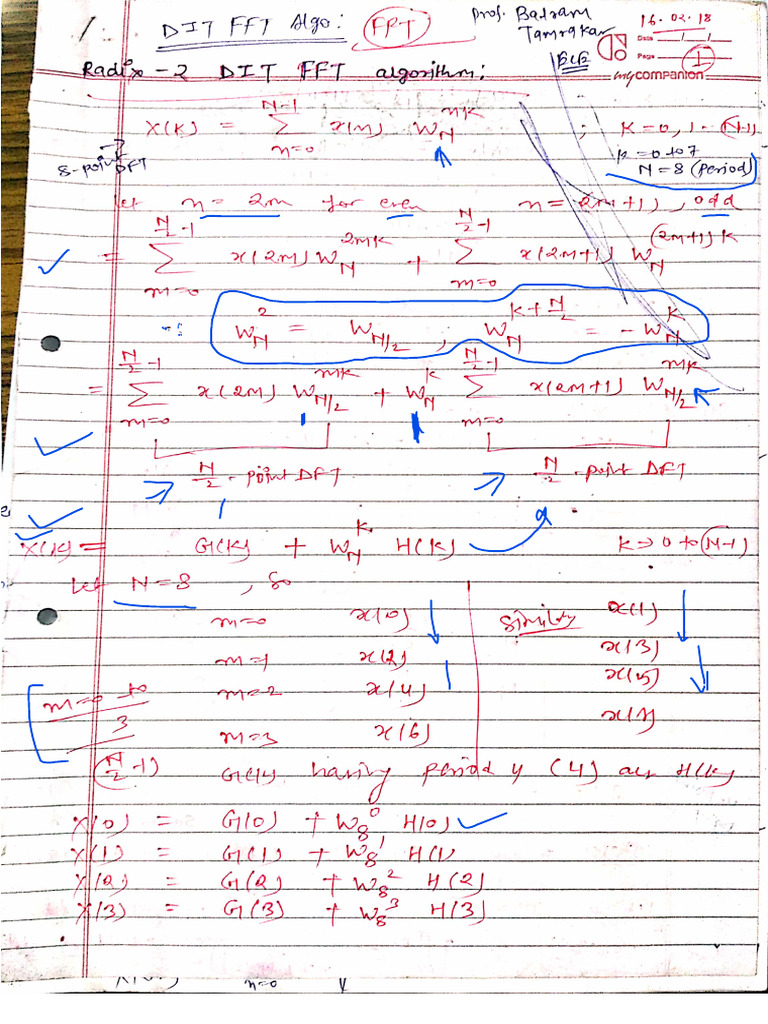 1. DIT FFT Algo: FFT Prof. Balram Tamrakar 16.02.18
Date / /
Page 1
mycompanion
Radix-2 DIT FFT algorithm:
X(K) = Σ_{n=0}^{N-1} x(n) W_N^{nK} ; K=0,1 - (N-1)
8-point DFT
K=0 to 7
N=8 (Period)
let n=2m for even n=(2m+1), odd
= Σ_{m=0}^{N/2-1} x(2m) W_N^{2mK} + Σ_{m=0}^{N/2-1} x(2m+1) W_N^{(2m+1)K}
∵ W_N^2 = W_{N/2} ; W_N^{K+N/2} = -W_N^K
= Σ_{m=0}^{N/2-1} x(2m) W_{N/2}^{mK} + W_N^K Σ_{m=0}^{N/2-1} x(2m+1) W_{N/2}^{mK}
N/2-point DFT N/2-point DFT
X(K) = G(K) + W_N^K H(K) K⇒0 to (N-1)
Let N=8, So
m=0 x(0) Similarly x(1)
m=1 x(2) x(3)
m=2 x(4) x(5)
m=3 x(6) x(7)
m=0 to 3
(N/2-1) G(K) having period of (4) as H(K)
X(0) = G(0) + W_8^0 H(0)
X(1) = G(1) + W_8^1 H(1)
X(2) = G(2) + W_8^2 H(2)
X(3) = G(3) + W_8^3 H(3)